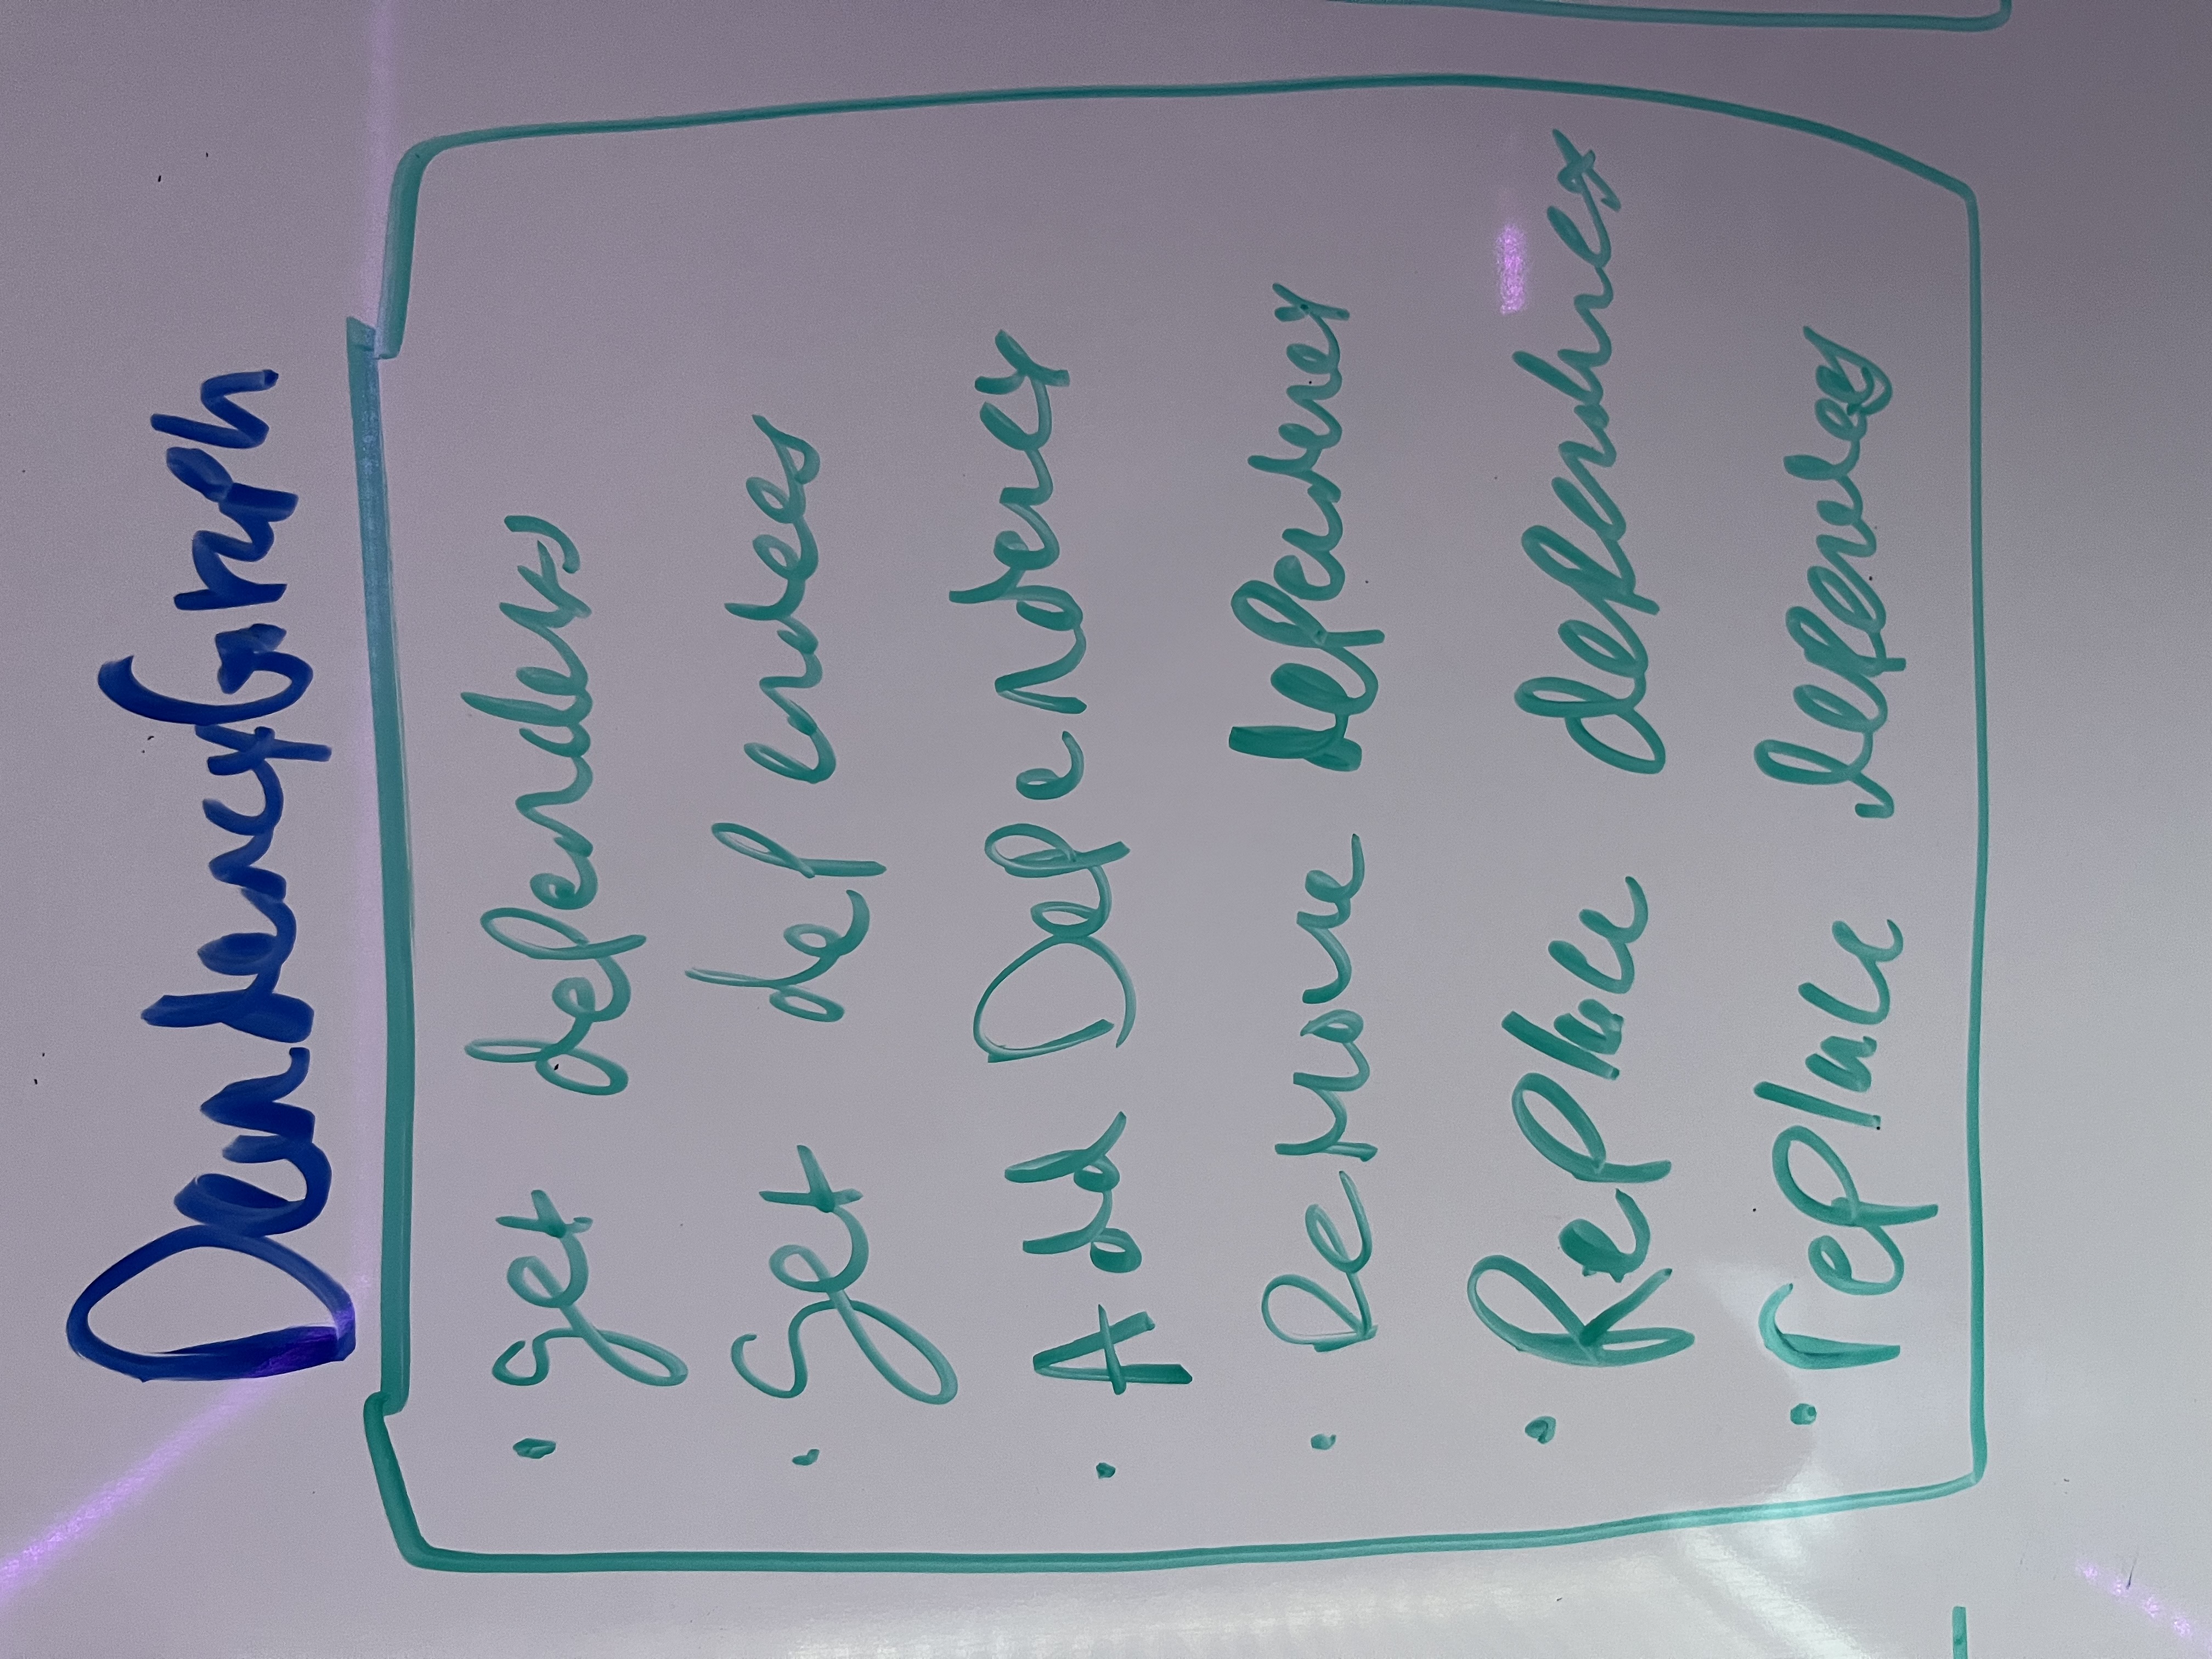 DendencyGraph
• get dependents
• Get dependees
• Add Dependency
• Remove dependency
• Replace dependency
• replace dependees